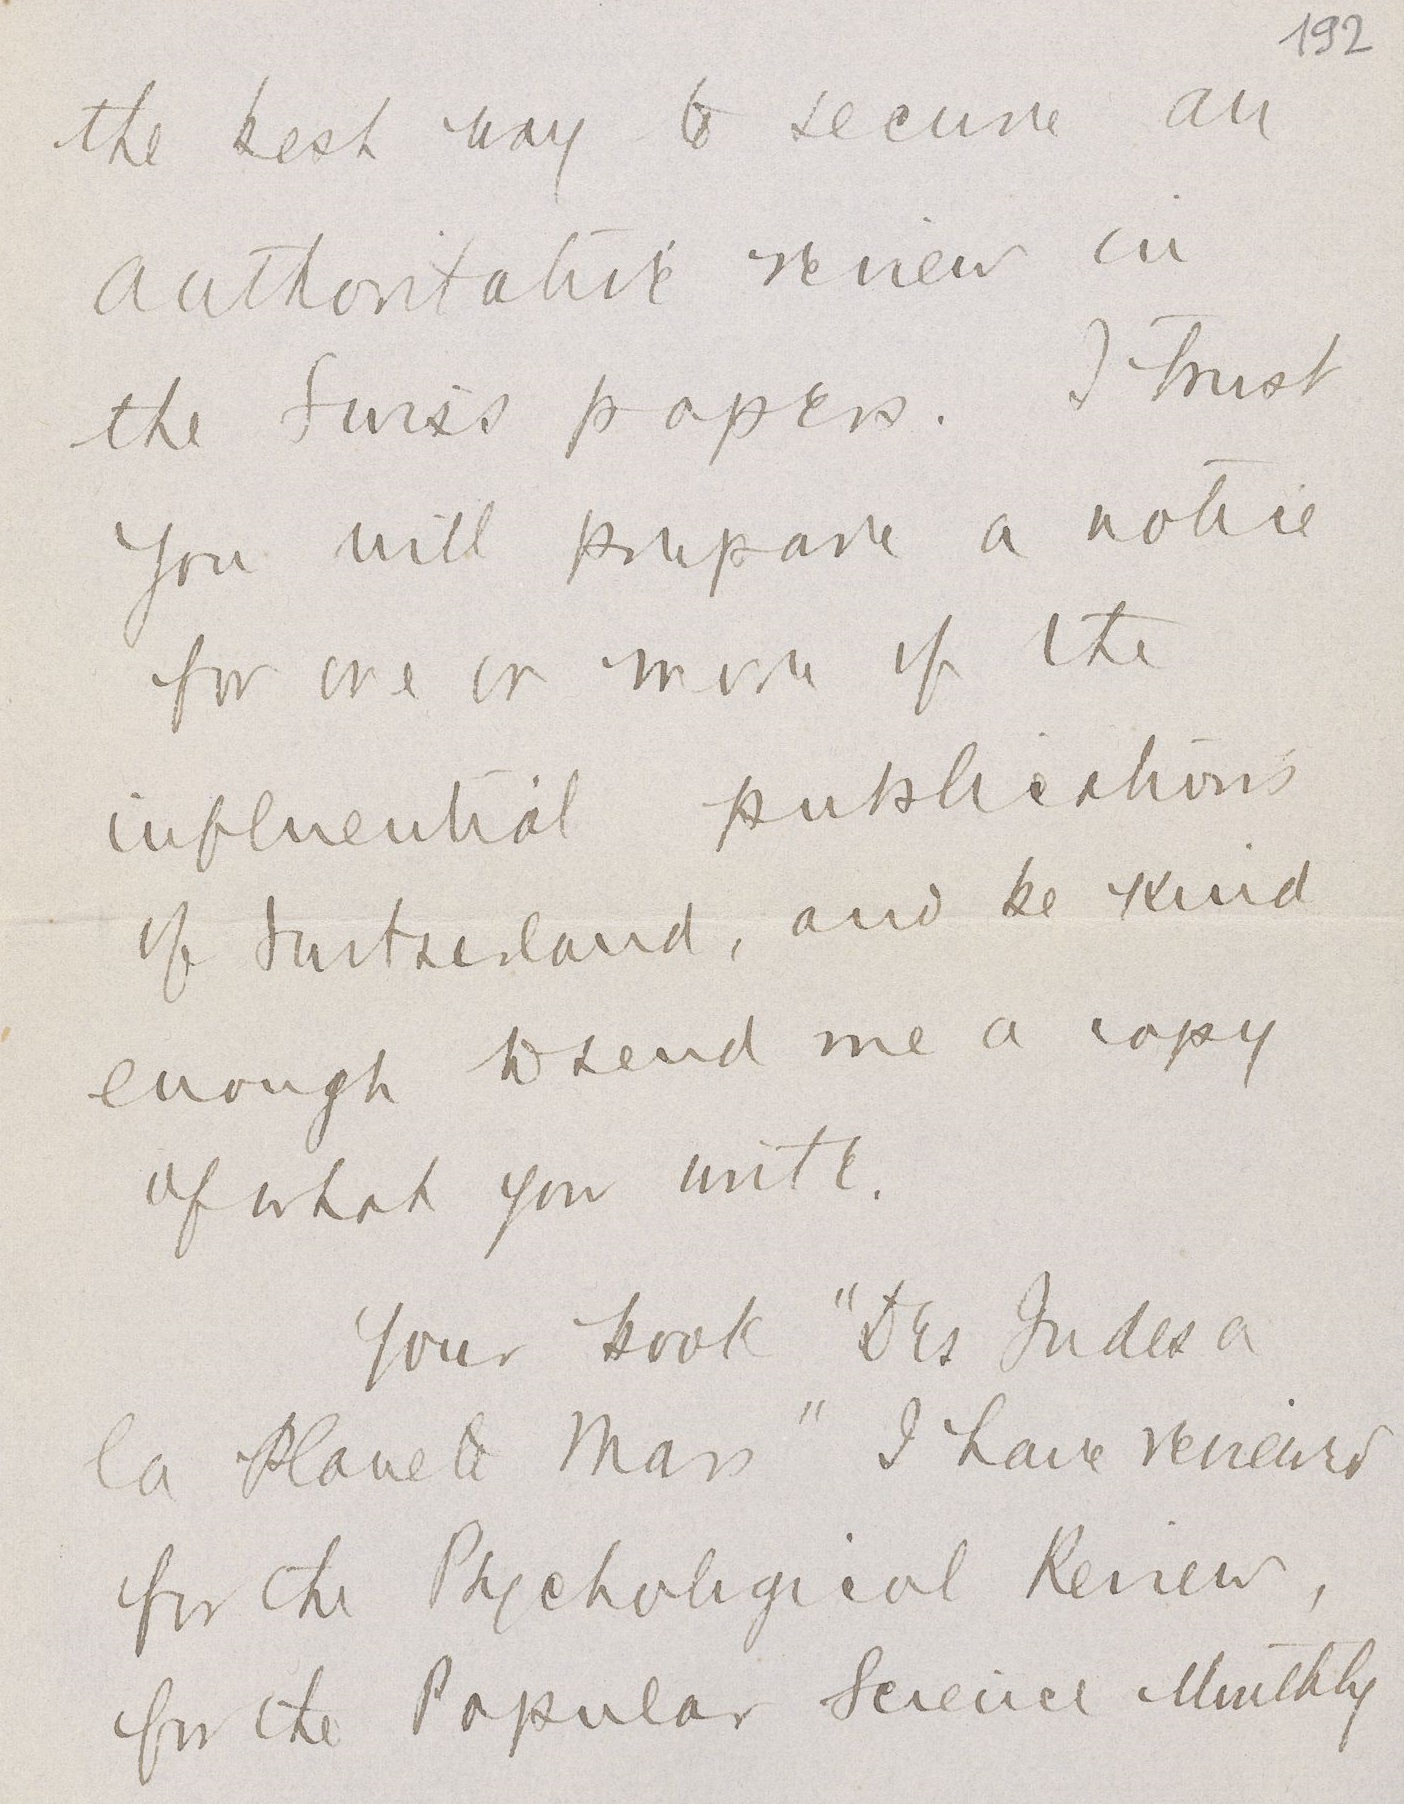 192
the best way to secure an
authoritative review in
the Swiss papers. I trust
you will prepare a notice
for one or more of the
influential publications
of Switzerland, and be kind
enough to send me a copy
of what you write.
Your book "Des Indes a
la Planete Mars" I have reviewed
for the Psychological Review,
for the Popular Science Monthly